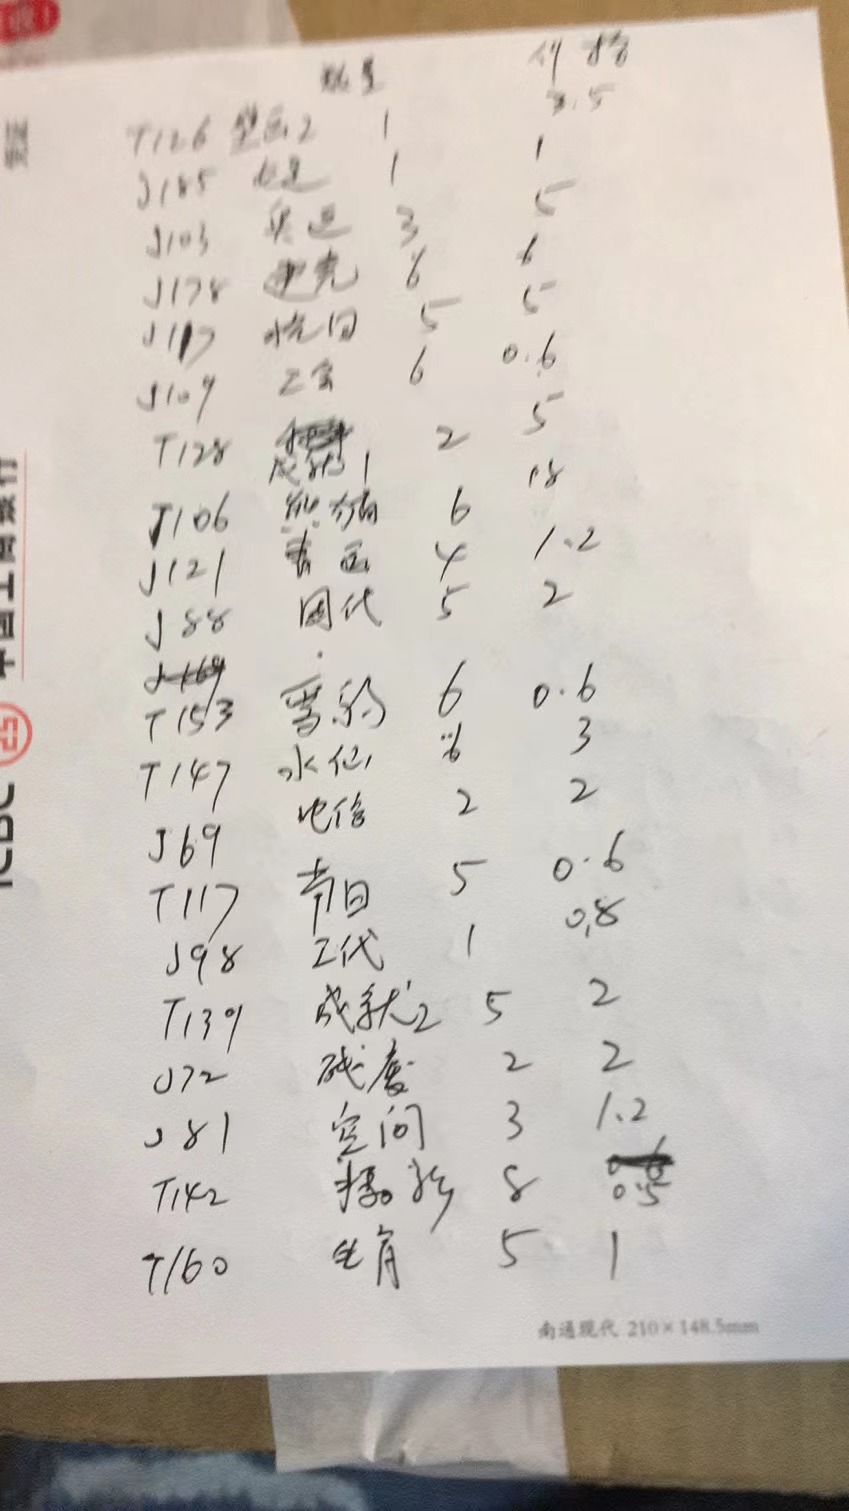 数量 价格
T126 壁画2 1 3.5
J185 1 1
J103 奥运 3 5
J178 6 6
J117 抗日 5 5
J109 工会 6 0.6
T128 成就1 2 5
T106 熊猫 6 18
J121 4 1.2
J88 团代 5 2
T153 雪豹 6 0.6
T147 水仙 6 3
J69 电信 2 2
T117 节日 5 0.6
J98 工代 1 0.8
T139 成就2 5 2
J72 残废 2 2
J81 空间 3 1.2
T142 摄影 8 0.5
T160 生肖 5 1
南通现代 210×148.5mm
中国工商银行
ICBC